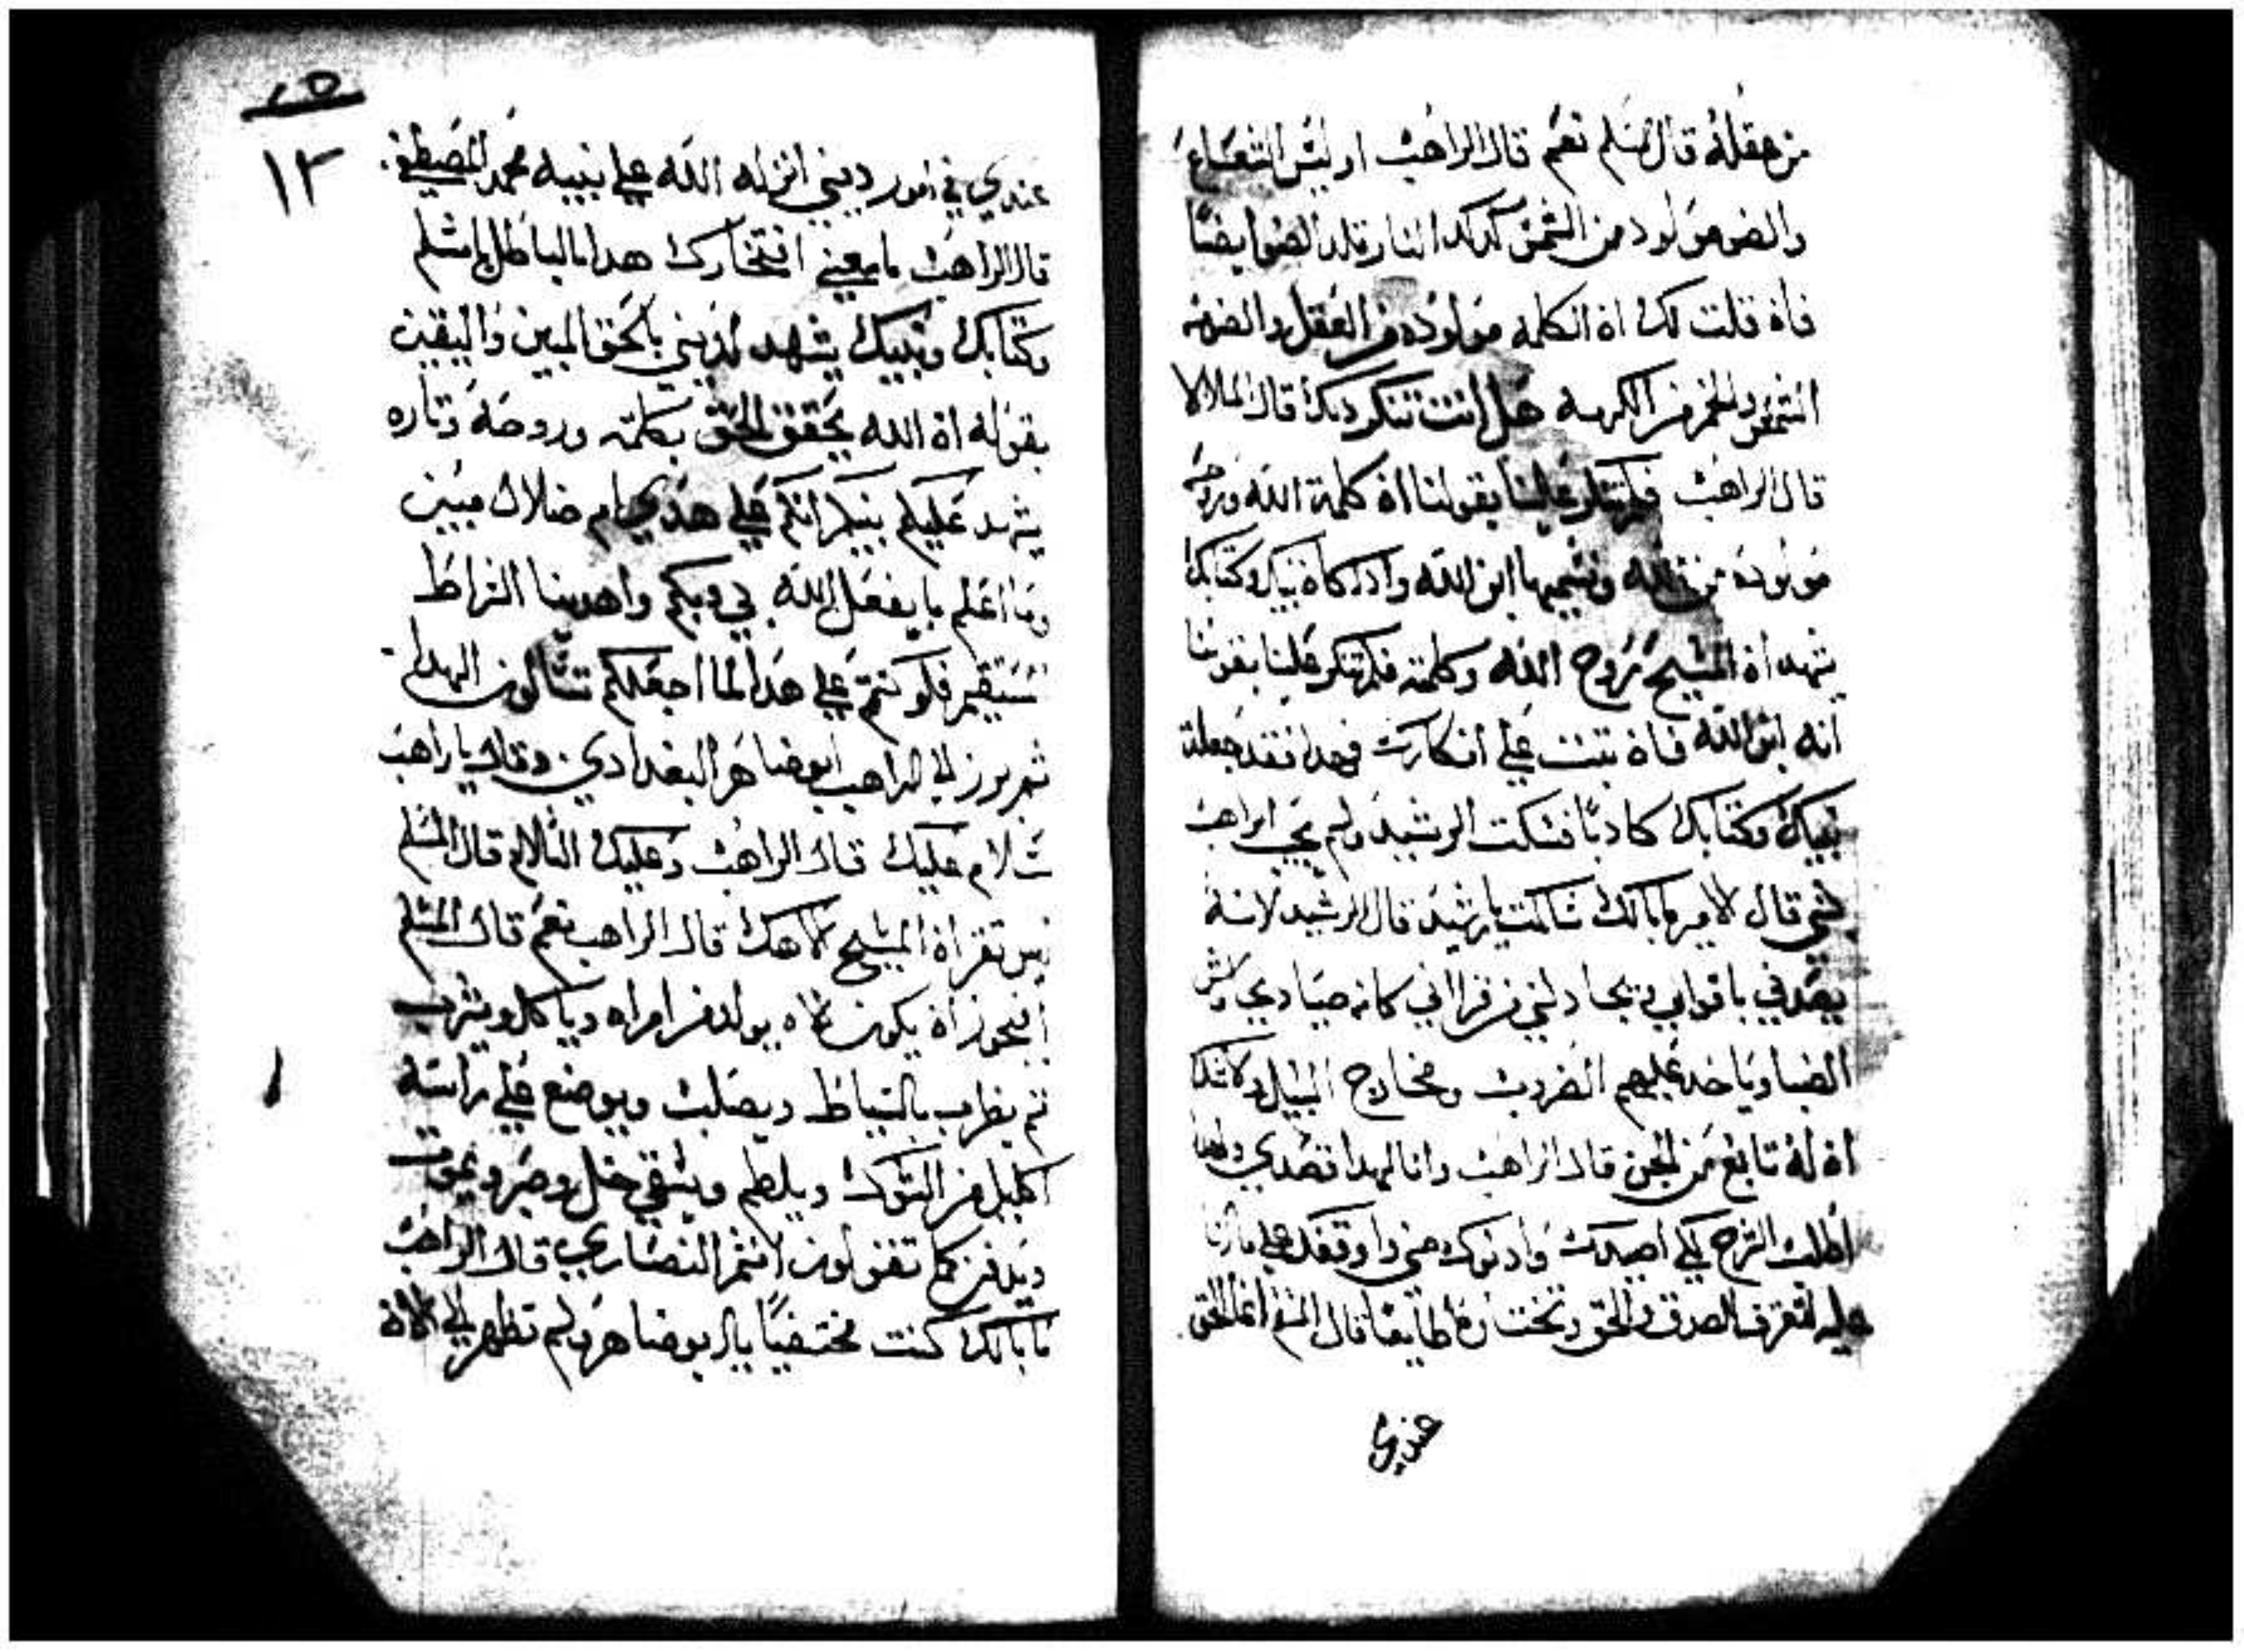 من عقله قال المسلم نعم قال الراهب اوليس الشعاع
والضو مولود من الشمس كدلك النار تلد الضو ايضًا
فاه قلت لك اه الكلمه مولوده من العقل والضو من
الشمس والخمر من الكرمه هل انت تنكر دلك قال الملا لا
قال الراهب فلم تنكر علينا بقولنا اه كلمة الله وروحه
مولوده من الله ونسميها ابن الله وادا كاه نبيك وكتابك
يشهد اه المسيح روح الله وكلمته فلم تنكر علينا بقولنا
انه ابن الله فاه تبتت علي انكارك فهدا فقد جعلت
نبيك وكتابك كادبًا فسكت الرشيد ولم يجب الراهب
بشي قال الامير ما بالك ساكت يا رشيد قال الرشيد لانه
يصدني باقوابي ويجادلني من قراني كانه صيادي
الصيا وياخد عليهم الضروب ومخارج السبيل ولا شك
اه له تابع من الجن قال الراهب وانا لهدا قصدي
اطلب الشرح لكي اصيدك وادنوك مني واوقفك علي
عليه لتعرف الصدق والحق وتختاره طايعًا قال المسلم انما الحق
عندي
٢٥
١٣
عندي في امور ديني انزله الله علي نبيه محمد المصطفي
قال الراهب ما معني افتخارك هدا بالباطل يا مسلم
وكتابك ونبيك يشهد لديني بالحق المبين واليقين
بقوله اه الله يحقق الحق بكلمته وروحه وتاره
يشهد عليكم نبيكم انكم علي هدي ام ضلال مبين
وما اعلم ما يفعل الله بي وبكم واهدينا الزاط
مستقيم فلو كنتم علي هدا لما اجعلكم تسالون الهدا
ثم برز الي الراهب ابو ضاهر البغدادي وقال يا راهب
سلام عليك قال الراهب وعليك السلام قال المسلم
ليس تقر اه المسيح الاهك قال الراهب نعم قال المسلم
افيجوز اه يكون الاه يولد من امراه وياكل ويشرب
تم يضرب بالسياط ويصلب ويوضع علي راسه
اكليل من الشوك ويلطم ويسقي خل وصبر ويموت
ويدفن كما تقولون انتم النصاري قال الراهب
ما بالك كنت مختفيًا يا ابو ضاهر ولم تظهر لي الااه